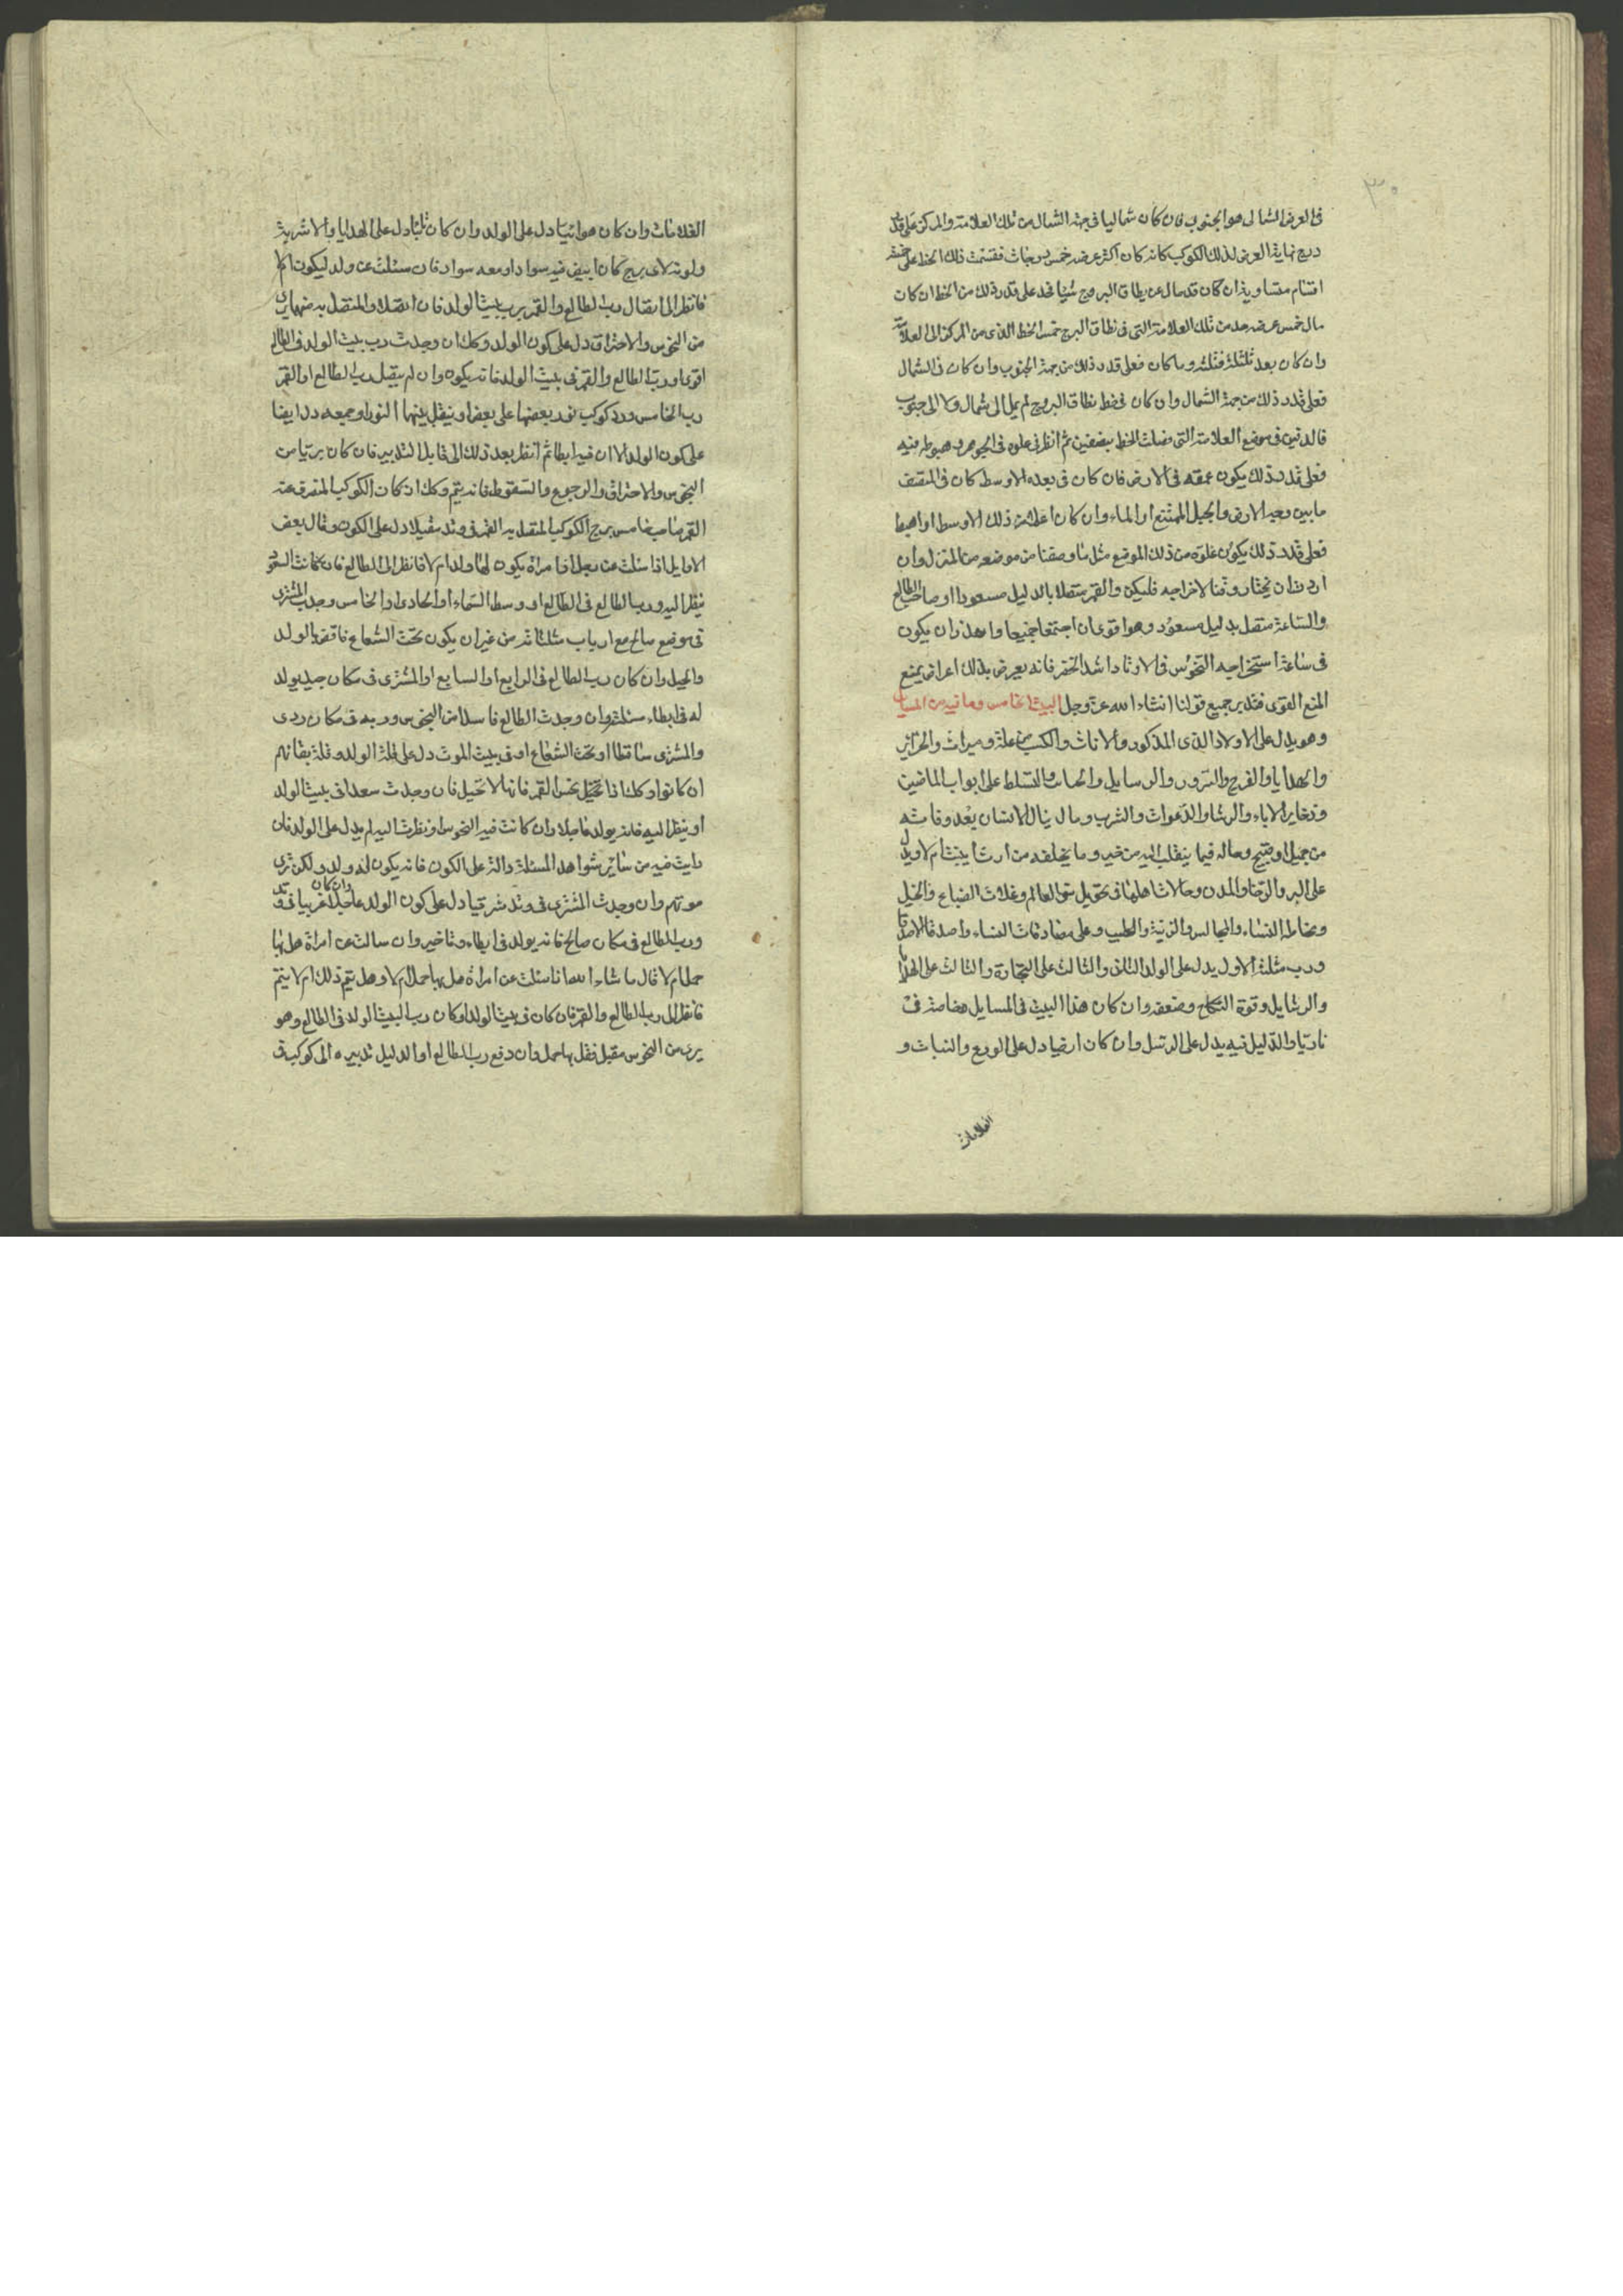 ٣٠
فى العرض الشمالى هو الجنوب فان كان شماليا فى جهة الشمال من تلك العلامة والمركز على قدر
درج نهاية العرض لذلك الكوكب كانه كان اكثر عرضه خمس درجات فقسمت ذلك الخط على خمسة
اقسام متساوية ان كان قد مال عن نطاق البروج شيئا فخذ على قدر ذلك من الخط ان كان
مال خمس عرضه من تلك العلامة التى فى نطاق البرج خمس الخط الذى من المركز الى العلامة
وان كان بعد ثلثه فثلثه وما كان فعلى قدر ذلك من جهة الجنوب وان كان فى الشمال
فعلى قدر ذلك من جهة الشمال وان كان فى خط نطاق البروج لم يمل الى شمال ولا الى جنوب
فالدفين فى موضع العلامة التى فصلت الخط بنصفين ثم انظر فى علوه فى الجوهر وهبوطه فيه
فعلى قدر ذلك يكون عمقه فى الارض فان كان فى بعده الاوسط كان فى المنتصف
ما بين وجه الارض والجبل الممتنع او الماء وان كان اعلا من ذلك الاوسط او اهبط
فعلى قدر ذلك يكون علوه من ذلك الموضع مثل ما وصفنا من موضعه من المنزل وان
اردت ان تختار وقتا لاخراجه فليكن والقمر متصلا بالدليل مسعودا او صاحب الطالع
والساعة متصل بدليل مسعود وهو اقوى ان اجتمعا جميعا واحذر ان يكون
فى ساعة استخراجه النحوس فى الاوتاد اشد الحذر فانه يعرض بذلك اعراض يمنع
المنع القوى فتدبر جميع قولنا انشاء الله عز وجل البيت الخامس وما فيه من المسايل
وهو يدل على الاولاد الذى المذكور والاناث والكتب من علة وميراث والخزاين
والهدايا والفرح والسرور والرسايل والحانات والتسلط على ابواب الماضين
وذخاير الاباء والرشا والدعوات والشرب وما ل ينال الانسان بعد وفاته
من جميل او قبيح وحاله فيما ينقلب اليه من خير وما يخلفه من ارث ايثبت ام لا ويدل
على البر والرضا والمدن وحالات اهلها فى تحويل سنى العالم وغلات الضياع والخيل
ومخاطبة النساء والمجالس والزينة والطيب وعلى مصادقات النساء واصدقا الاصدقا
ورب مثلثة الاول يدل على الولد والثانى والثالث على التجارة والثالث على الهدايا
والرسايل وقوة النكاح وضعفه وان كان هذا البيت فى المسايل خاصة فى
ناريا والدليل فيه يدل على الرسل وان كان ارضيا دل على الورع والنبات و
الغلامات
الغلامات وان كان هوائيا دل على الولد وان كان مائيا دل على الهدايا والاشربة
ولونه لاى برج كان ابيض فيه سواد او معه سواد فان سئلت عن ولد ليكون ام لا
فانظر الى اتصال رب الطالع والقمر برب بيت الولد فان اتصلا والمتصل به منهما برى
من النحوس والاحتراق دل على كون الولد وكك ان وجدت رب بيت الولد فى الطالع
اقوى او رب الطالع والقمر فى بيت الولد فانه يكون وان لم يتصل رب الطالع او القمر
رب الخامس ورد كوكب نور بعضها على بعض او ينقل بينهما النور او جمعه دل ايضا
على كون الولد الا ان فيه ابطا ثم انظر بعد ذلك الى قابل التدبير فان كان بريا من
النحوس والاحتراق والرجوع والسقوط فانه يتم وكك ان كان الكوكب المنصرف عنه
القمر صاحب خامس برج الكوكب المتصل به القمر فى وتد مقبلا دل على الكون وقال بعض
الاوايل اذا سئلت عن رجل او امراة يكون لها ولد ام لا فانظر الى الطالع فان كانت السعود
ينظر اليه ورب الطالع فى الطالع او وسط السماء او الحادى او الخامس وجدت المشترى
فى موضع صالح مع ارباب مثلثاته من غير ان يكون تحت الشعاع فاقض بالولد
والحبل وان كان رب الطالع فى الرابع او السابع او المشترى فى مكان جيد يولد
له فى ابطاء مسئلته وان وجدت الطالع فاسدا من النحوس وربه فى مكان ردى
والمشترى ساقطا او تحت الشعاع او فى بيت الموت دل على قلة الولد وقلة بقائهم
ان كانوا وكك اذا تخيل نحس القمر فانها لا تحبل فان وجدت سعدا فى بيت الولد
او ينظر اليه فانه يولد عاجلا وان كانت فيه النحوس او نظرت اليه لم يدل على الولد فان
رايت فيه من ساير شواهد المسئلة دالة على الكون فانه يكون له ولد ولكن ترى
موتهم وان وجدت المشترى فى وتد شرقيا دل على كون الولد عاجلا وان كان غربيا فى وتد
ورب الطالع فى مكان صالح فانه يولد فى ابطاء وتاخير وان سالت عن امراة هل بها
حمل ام لا قال ما شاء الله اذا سئلت عن امراة هل بها حمل ام لا وهل يتم ذلك ام لا يتم
فانظر الى رب الطالع والقمر فان كان فى بيت الولد او كان رب البيت الولد فى الطالع وهو
برى من النحوس مقبل فقل بها حمل وان دفع رب الطالع او الدليل تدبيره الى كوكب فى